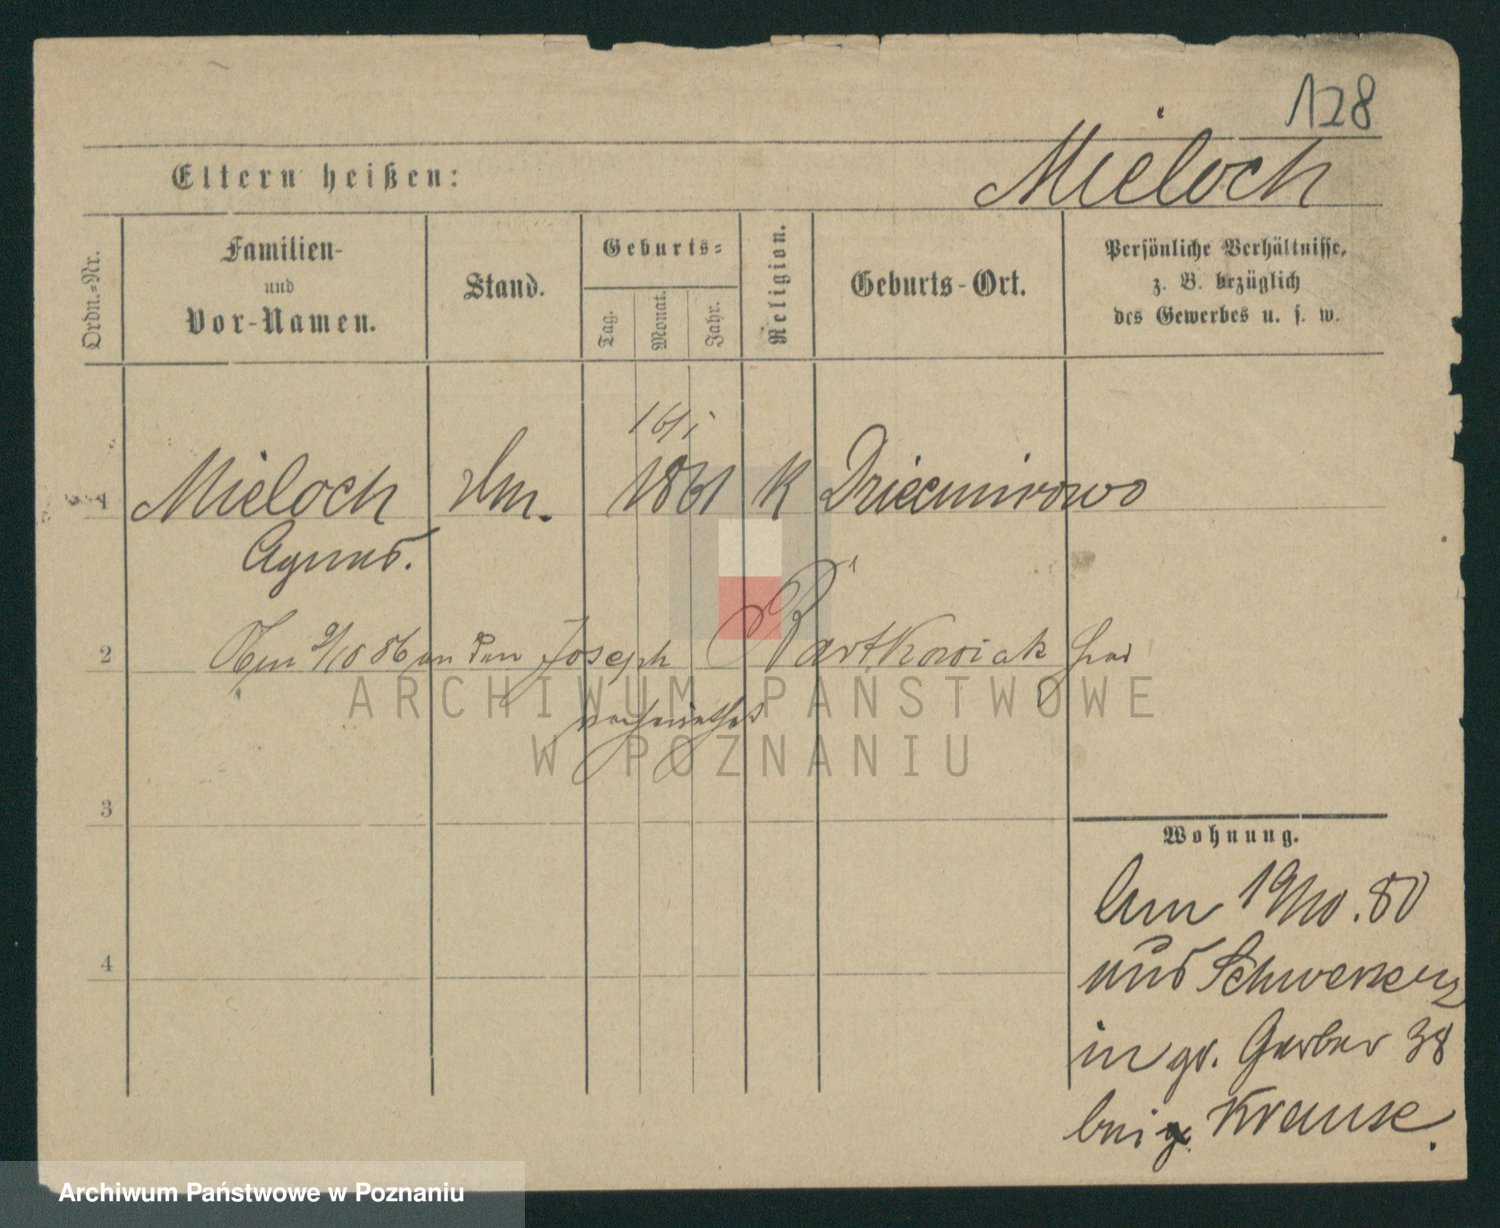 128
Eltern heißen:
Mieloch
Ordn.-Nr.
Familien-
und
Vor-Namen.
Stand.
Geburts-
Tag.
Monat.
Jahr.
Religion.
Geburts-Ort.
Persönliche Verhältnisse,
z. B. bezüglich
des Gewerbes u. s. w.
16/1
1
Mieloch
1861
K
Dziecmirowo
Agnes.
2
9/10 86 an den Joseph Bartkowiak hier
verheirathet
ARCHIWUM PAŃSTWOWE
W POZNANIU
3
4
Wohnung.
Am 19/10. 80
aus Schwersenz
in gr. Gerber 38
bei Krause.
Archiwum Państwowe w Poznaniu